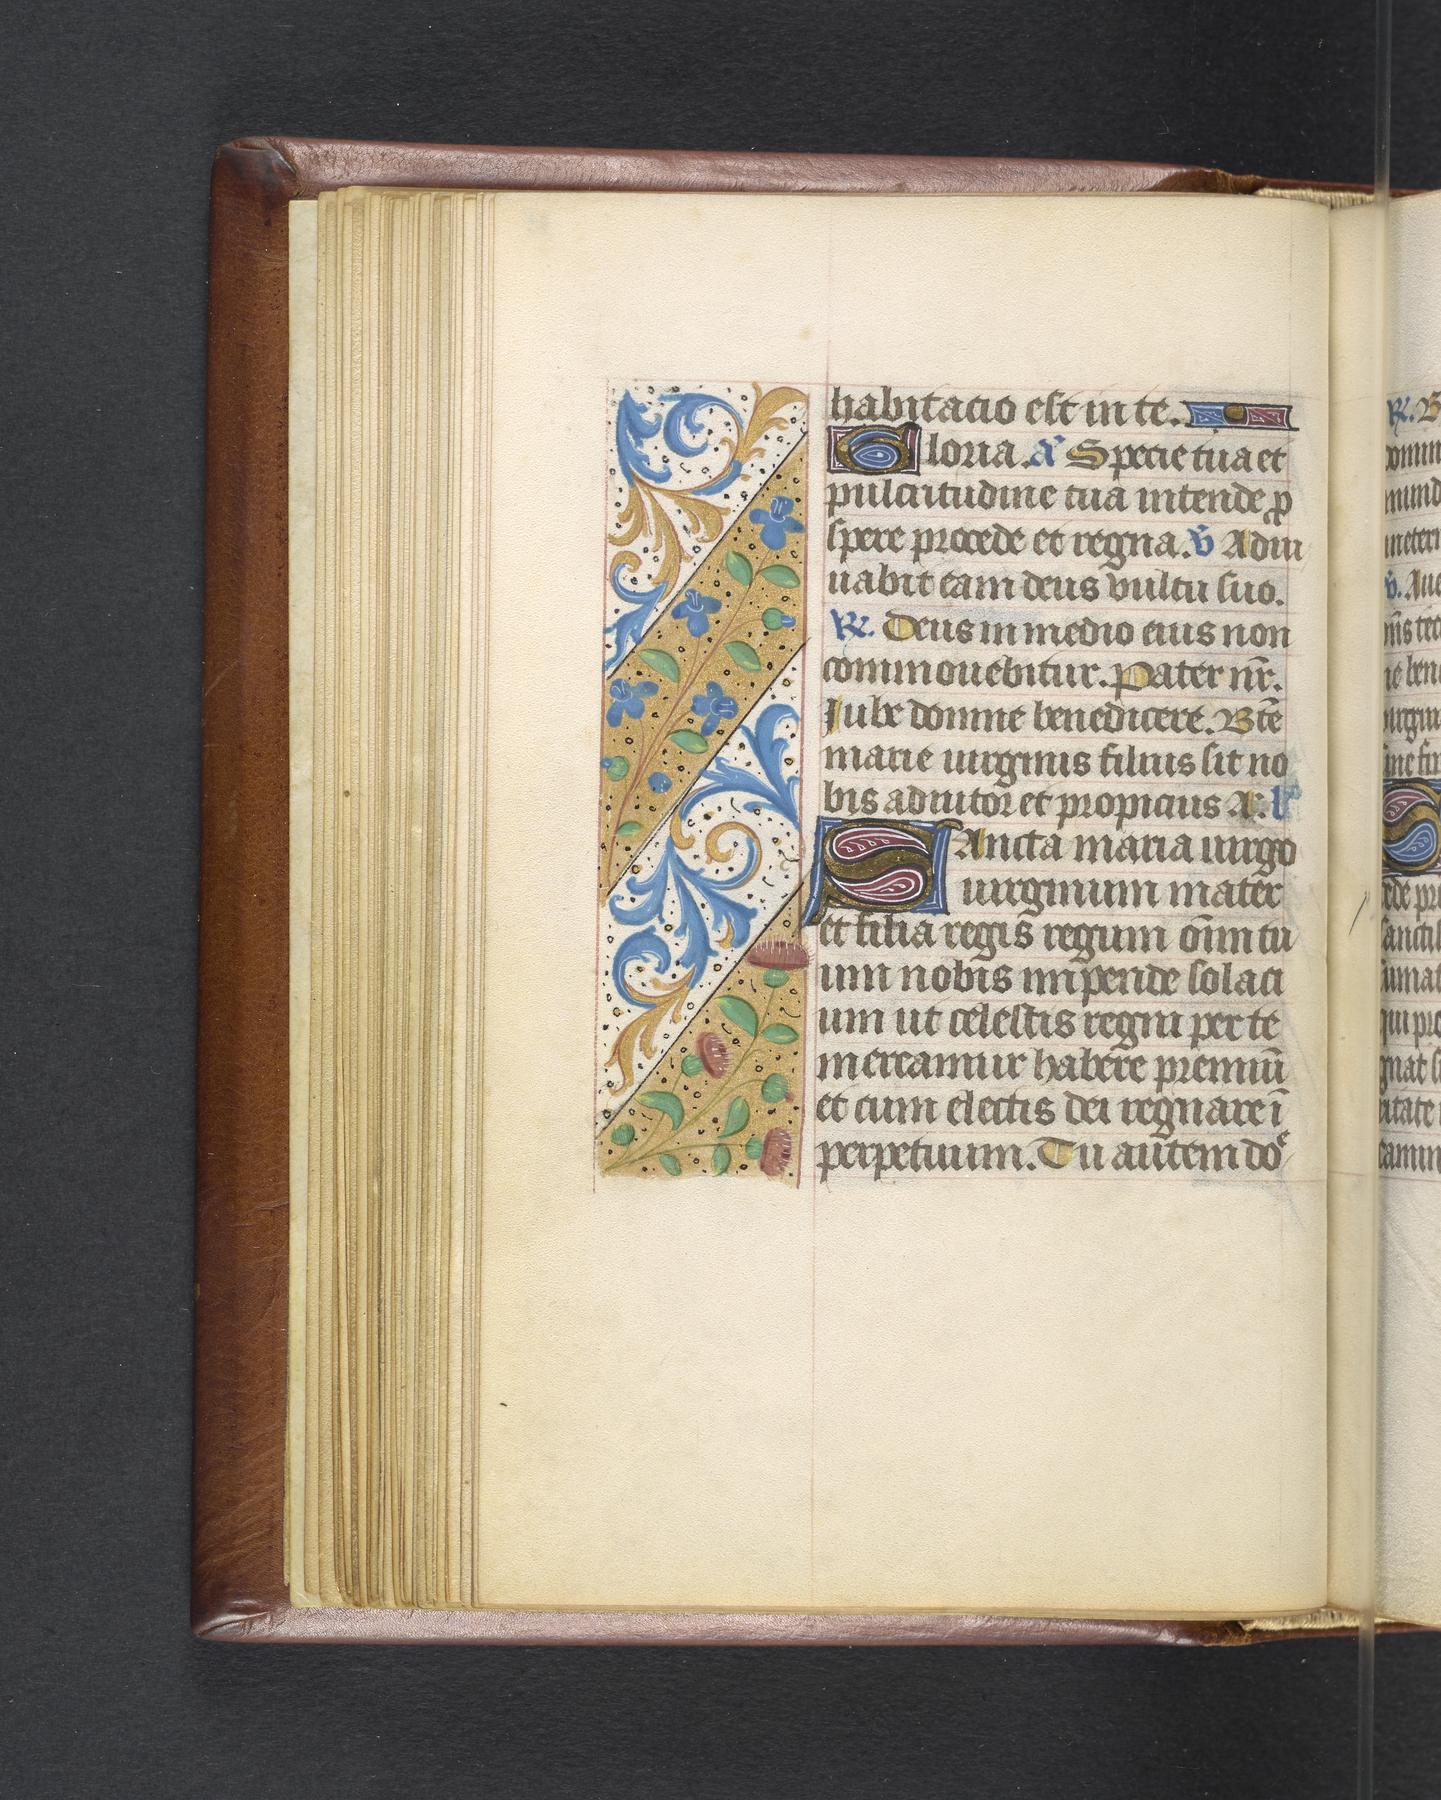 habitatio est in te.
Gloria. a Specie tua et
pulcritudine tua intende p̱
spere procede et regna. v̄ Adiu
uabit eam deus vultu suo.
R. Deus in medio eius non
commouebitur. Pater nr̄.
Jube domne benedicere. Btē
marie uirginis filius sit no
bis adiutor et propicius A:
Sancta maria uirgo
uirginum mater
et filia regis regum om̄ tu
um nobis impende solaci
um ut celestis regni per te
mereamur habere premiū
et cum electis dei regnare ī
perpetuum. Tu autem do